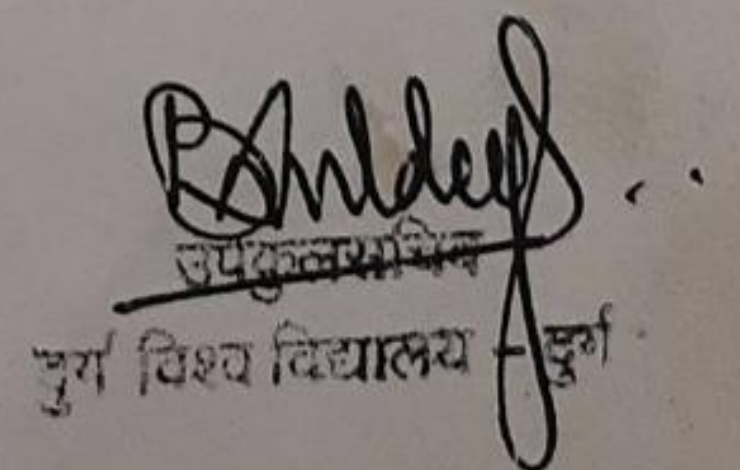 उपकुलसचिव
दुर्ग विश्व विद्यालय - दुर्ग